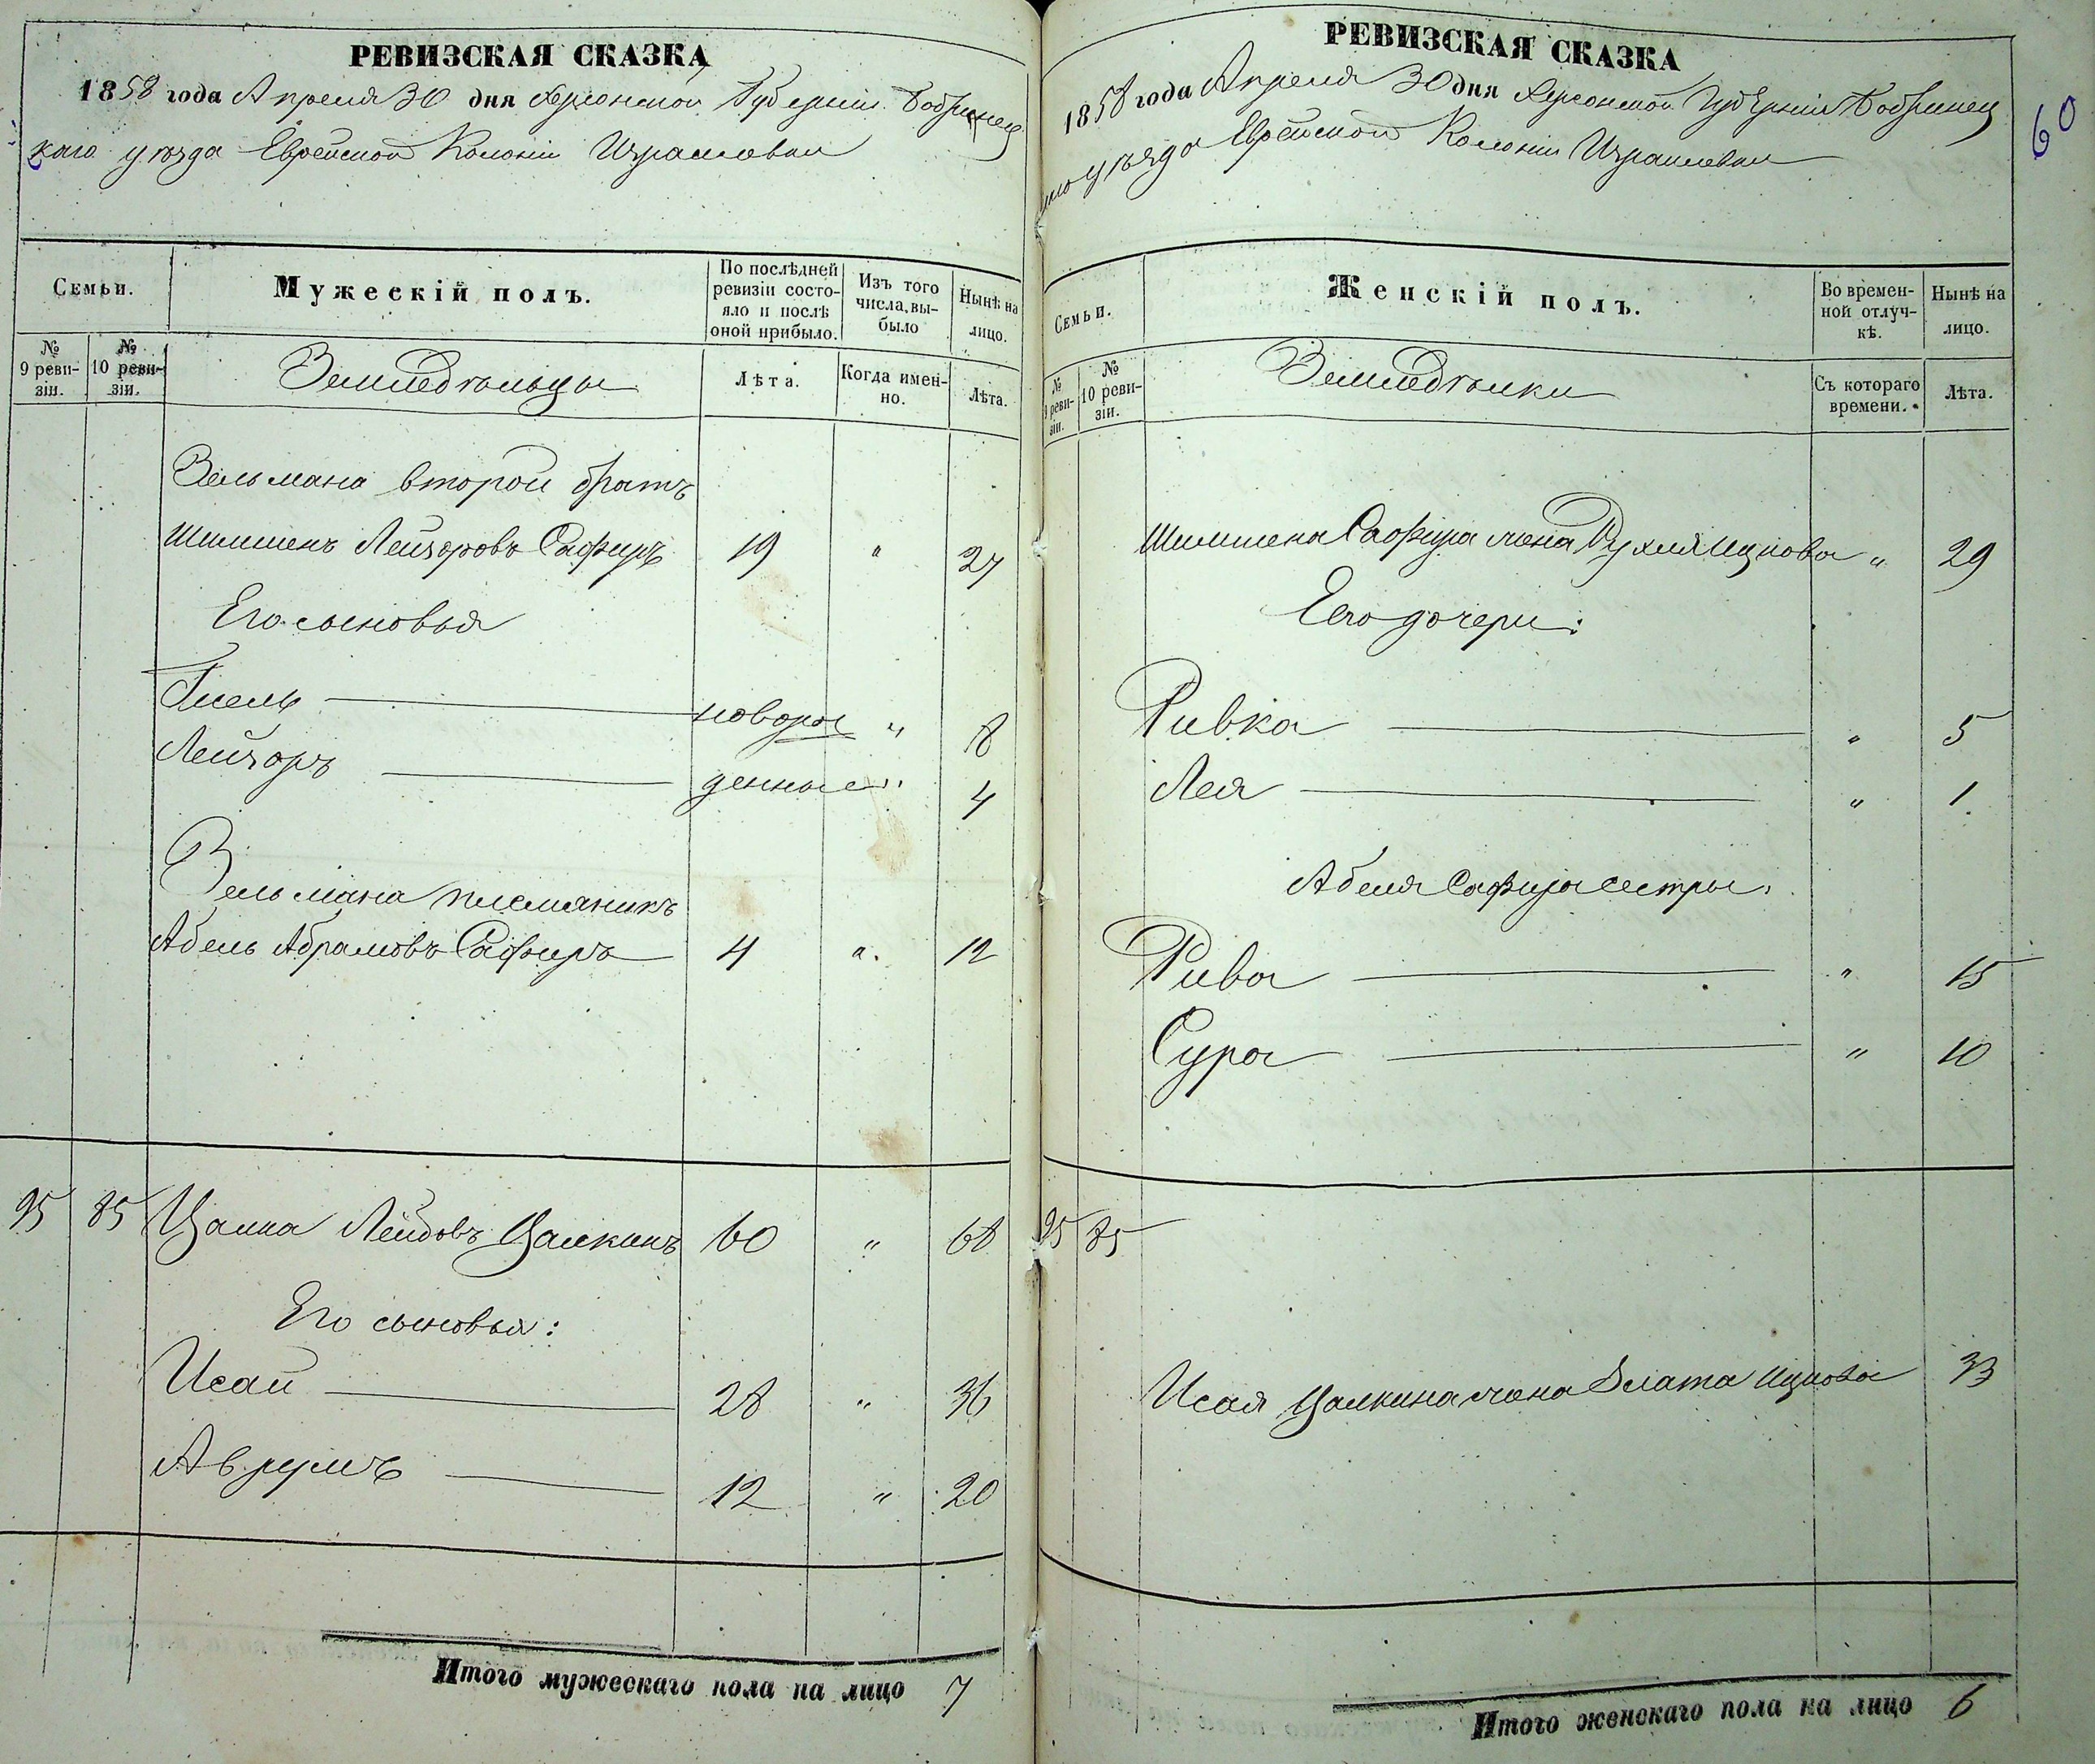 РЕВИЗСКАЯ СКАЗКА
1858 года Апреля 30 дня Херсонской Губерніи Бобринец
каго уѣзда Еврейской Колоніи Израилевки
Семьи.
Мужескій полъ.
По послѣдней ревизіи состо-
яло и послѣ оной прибыло.
Изъ того числа вы-
было
Нынѣ на лицо.
№ 9 реви-
зіи.
№ 10 реви-
зіи.
Земледѣльцы
Лѣта.
Когда имен-
но.
Лѣта.
Зельмана второй братъ
Шлименъ Лейзоровъ Сафиръ 19 " 27
Его сыновья
— новорож " 8
Лейзоръ — денные " 4
Зельмана племяникъ
Абель Абрамовъ Сафиръ 4 " 12
95 85 Цалка Лейбовъ Цалкинъ 60 " 68
Его сыновья:
Исай — 28 " 36
Аврумъ — 12 " 20
Итого мужескаго пола на лицо 7
60
РЕВИЗСКАЯ СКАЗКА
1858 года Апреля 30 дня Херсонской Губерніи Бобринец
каго уѣзда Еврейской Колоніи Израилевки
Семьи.
Женскій полъ.
Во времен-
ной отлуч-
кѣ.
Нынѣ на лицо.
№ 9 реви-
зіи.
№ 10 реви-
зіи.
Земледѣлки
Съ котораго времени.
Лѣта.
Шлимена Сафира жена Рухля Ицкова " 29
Его дочери:
Ривка — " 5
Лея — " 1
Абеля Сафира сестры.
Рива — " 15
Сура — " 10
95 85
Исая Цалкина жена Злата Ицкова 33
Итого женскаго пола на лицо 6